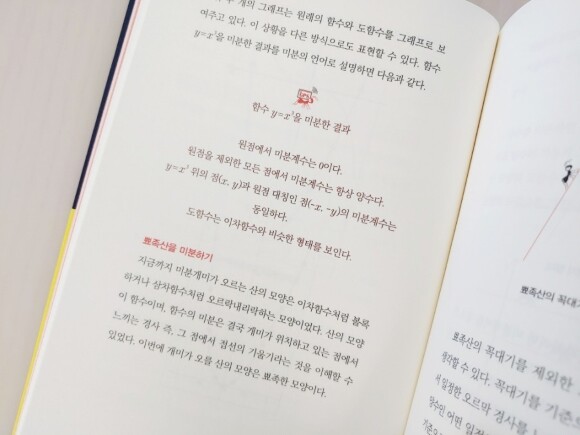 개의 그래프는 원래의 함수와 도함수를 그래프로 보
여주고 있다. 이 상황을 다른 방식으로도 표현할 수 있다. 함수
y=x³을 미분한 결과를 미분의 언어로 설명하면 다음과 같다.
함수 y=x³을 미분한 결과
원점에서 미분계수는 0이다.
원점을 제외한 모든 점에서 미분계수는 항상 양수다.
y=x³ 위의 점(x, y)과 원점 대칭인 점(-x, -y)의 미분계수는
동일하다.
도함수는 이차함수와 비슷한 형태를 보인다.
뾰족산을 미분하기
지금까지 미분개미가 오르는 산의 모양은 이차함수처럼 볼록
하거나 삼차함수처럼 오르락내리락하는 모양이었다. 산의 모양
이 함수이며, 함수의 미분은 결국 개미가 위치하고 있는 점에서
느끼는 경사 즉, 그 점에서 접선의 기울기라는 것을 이해할 수
있었다. 이번에 개미가 오를 산의 모양은 뾰족한 모양이다.
뾰족산의 꼭대
뾰족산의 꼭대기를 제외한
생각할 수 있다. 꼭대기를 기준으
서 일정한 오르막 경사를
양수인 어떤 일정